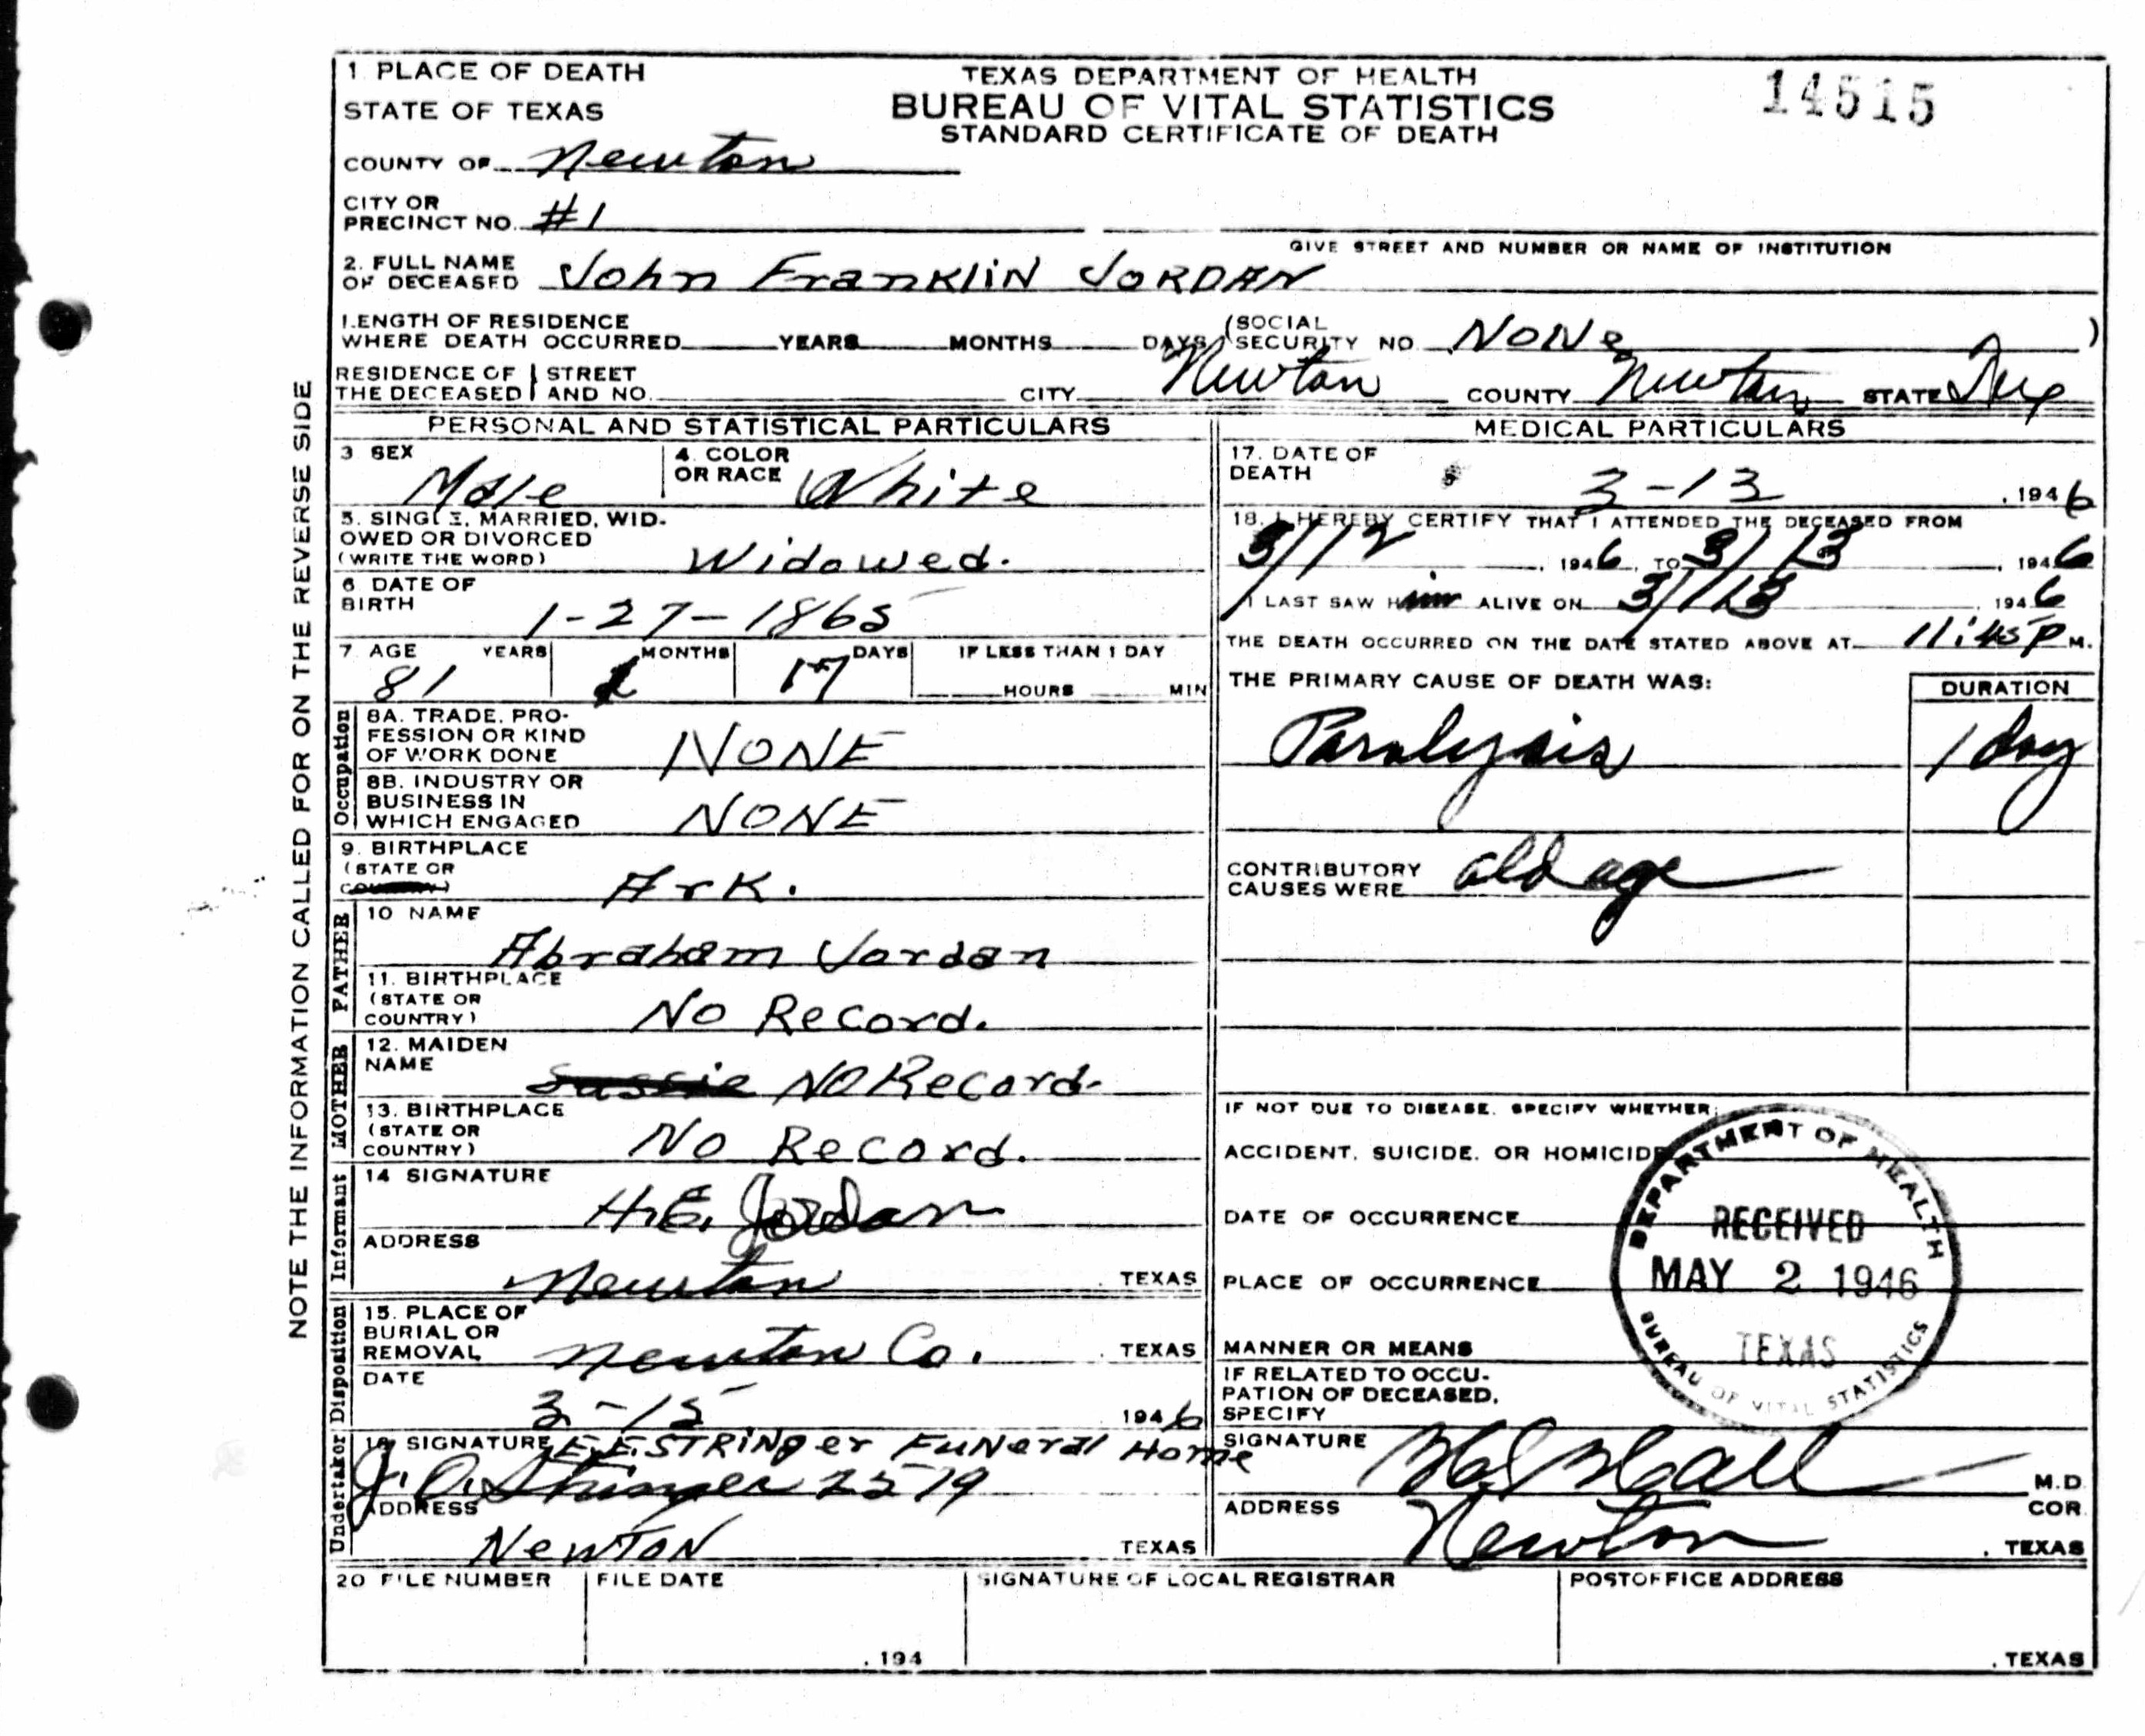 NOTE THE INFORMATION CALLED FOR ON THE REVERSE SIDE
1 PLACE OF DEATH
STATE OF TEXAS
TEXAS DEPARTMENT OF HEALTH
BUREAU OF VITAL STATISTICS
STANDARD CERTIFICATE OF DEATH
14515
COUNTY OF Newton
CITY OR PRECINCT NO. #1
GIVE STREET AND NUMBER OR NAME OF INSTITUTION
2. FULL NAME OF DECEASED John Franklin Jordan
LENGTH OF RESIDENCE WHERE DEATH OCCURRED YEARS MONTHS DAYS (SOCIAL SECURITY NO. None )
RESIDENCE OF THE DECEASED STREET AND NO. CITY Newton COUNTY Newton STATE Tex
PERSONAL AND STATISTICAL PARTICULARS
3 SEX Male
4. COLOR OR RACE White
5. SINGLE, MARRIED, WIDOWED OR DIVORCED (WRITE THE WORD) Widowed.
6 DATE OF BIRTH 1-27-1865
7 AGE YEARS 81 MONTHS DAYS 17 IF LESS THAN 1 DAY HOURS MIN
Occupation
8A. TRADE, PROFESSION OR KIND OF WORK DONE NONE
8B. INDUSTRY OR BUSINESS IN WHICH ENGAGED NONE
9. BIRTHPLACE (STATE OR COUNTRY) Ark.
FATHER
10 NAME Abraham Jordan
11. BIRTHPLACE (STATE OR COUNTRY) No Record.
MOTHER
12. MAIDEN NAME No Record.
13. BIRTHPLACE (STATE OR COUNTRY) No Record.
Informant
14 SIGNATURE H.E. Jordan
ADDRESS Newton TEXAS
Disposition
15. PLACE OF BURIAL OR REMOVAL Newton Co. TEXAS
DATE 3-15 1946
Undertaker
16 SIGNATURE E.E. Stringer Funeral Home
J.A. Stringer 2579
ADDRESS Newton TEXAS
MEDICAL PARTICULARS
17. DATE OF DEATH 3-13 , 1946
18. I HEREBY CERTIFY THAT I ATTENDED THE DECEASED FROM
3/12 , 1946, TO 3/13 , 1946
I LAST SAW Him ALIVE ON 3/13 , 1946
THE DEATH OCCURRED ON THE DATE STATED ABOVE AT 11:45 P M.
THE PRIMARY CAUSE OF DEATH WAS: DURATION
Paralysis 1 day
CONTRIBUTORY CAUSES WERE old age
IF NOT DUE TO DISEASE, SPECIFY WHETHER:
ACCIDENT, SUICIDE, OR HOMICIDE
DATE OF OCCURRENCE
PLACE OF OCCURRENCE
MANNER OR MEANS
IF RELATED TO OCCUPATION OF DECEASED, SPECIFY
DEPARTMENT OF HEALTH
RECEIVED
MAY 2 1946
TEXAS
BUREAU OF VITAL STATISTICS
SIGNATURE M.D. COR.
ADDRESS Newton , TEXAS
20 FILE NUMBER
FILE DATE , 194
SIGNATURE OF LOCAL REGISTRAR
POSTOFFICE ADDRESS , TEXAS